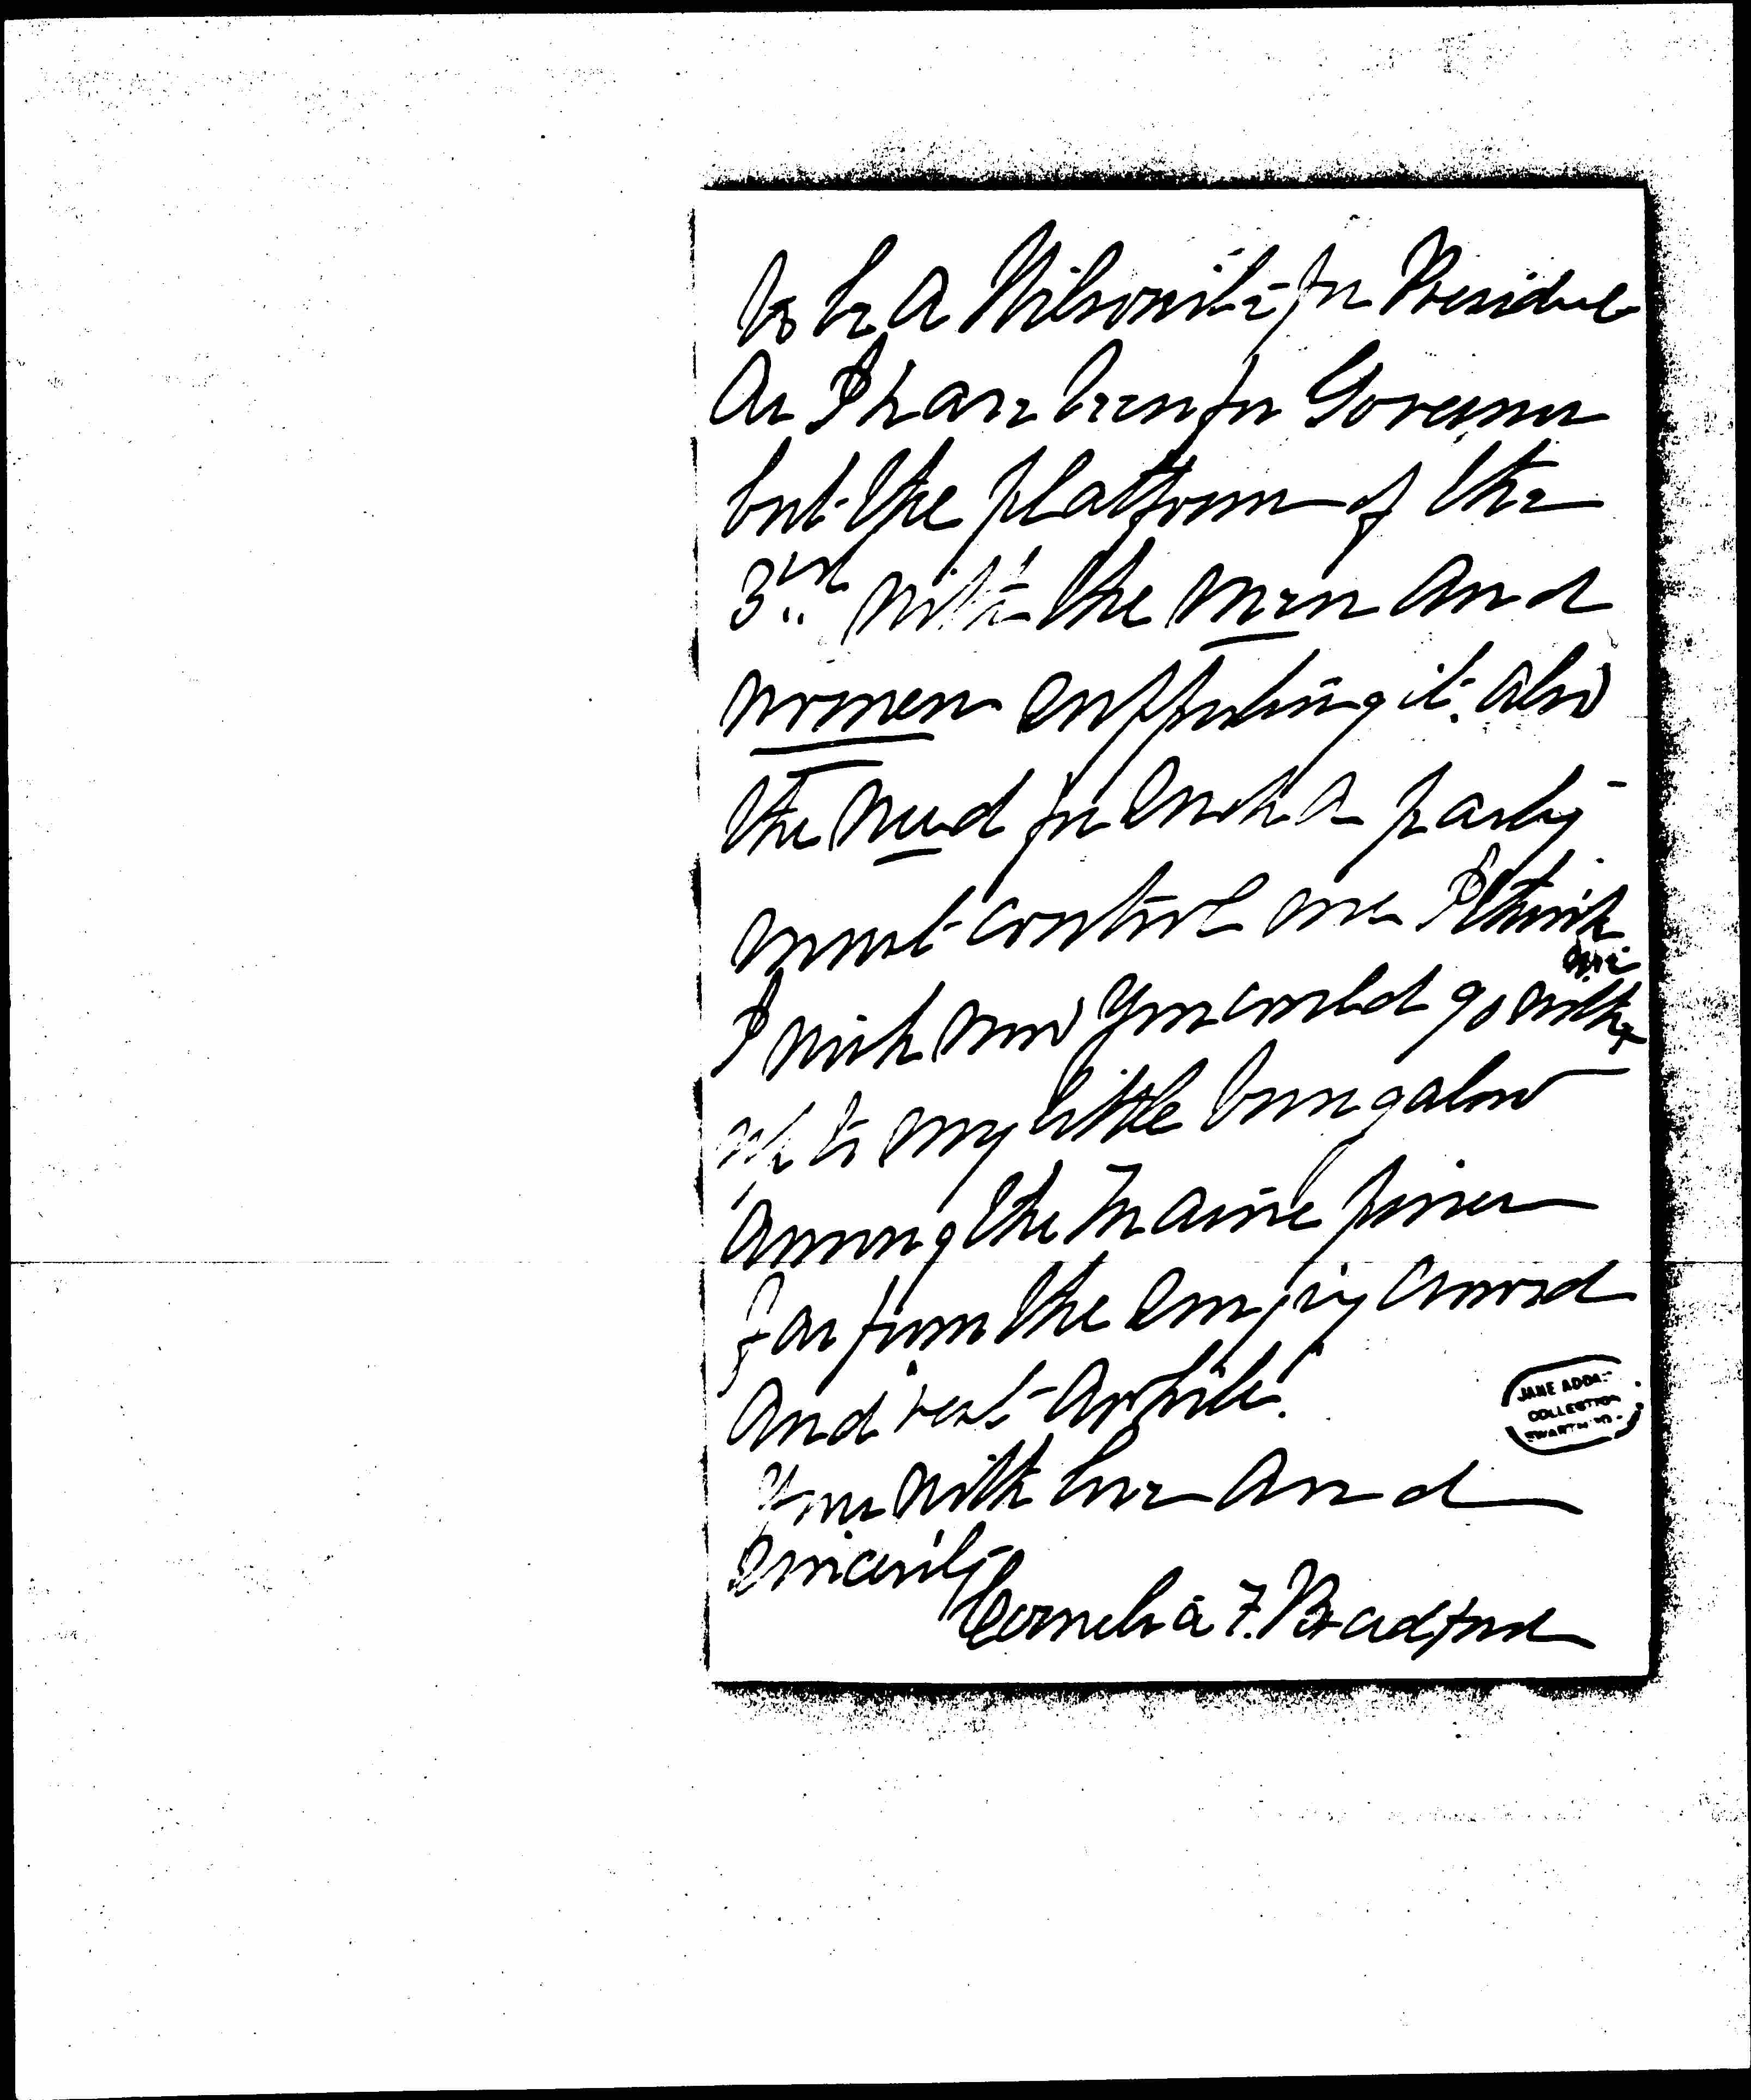 to be a Wilsonite for President
as I have been for Governor
but the platform of the
3rd with the men and
women supporting it. also
the need for such a party
must control me I think.
I wish now you could go with me
up to my little bungalow
among the Maine pines
far from the crowd
and rest awhile.
Your with love and
sincerity
Cornelia F. Bradford
JANE ADDA
COLLECTION
SWARTH